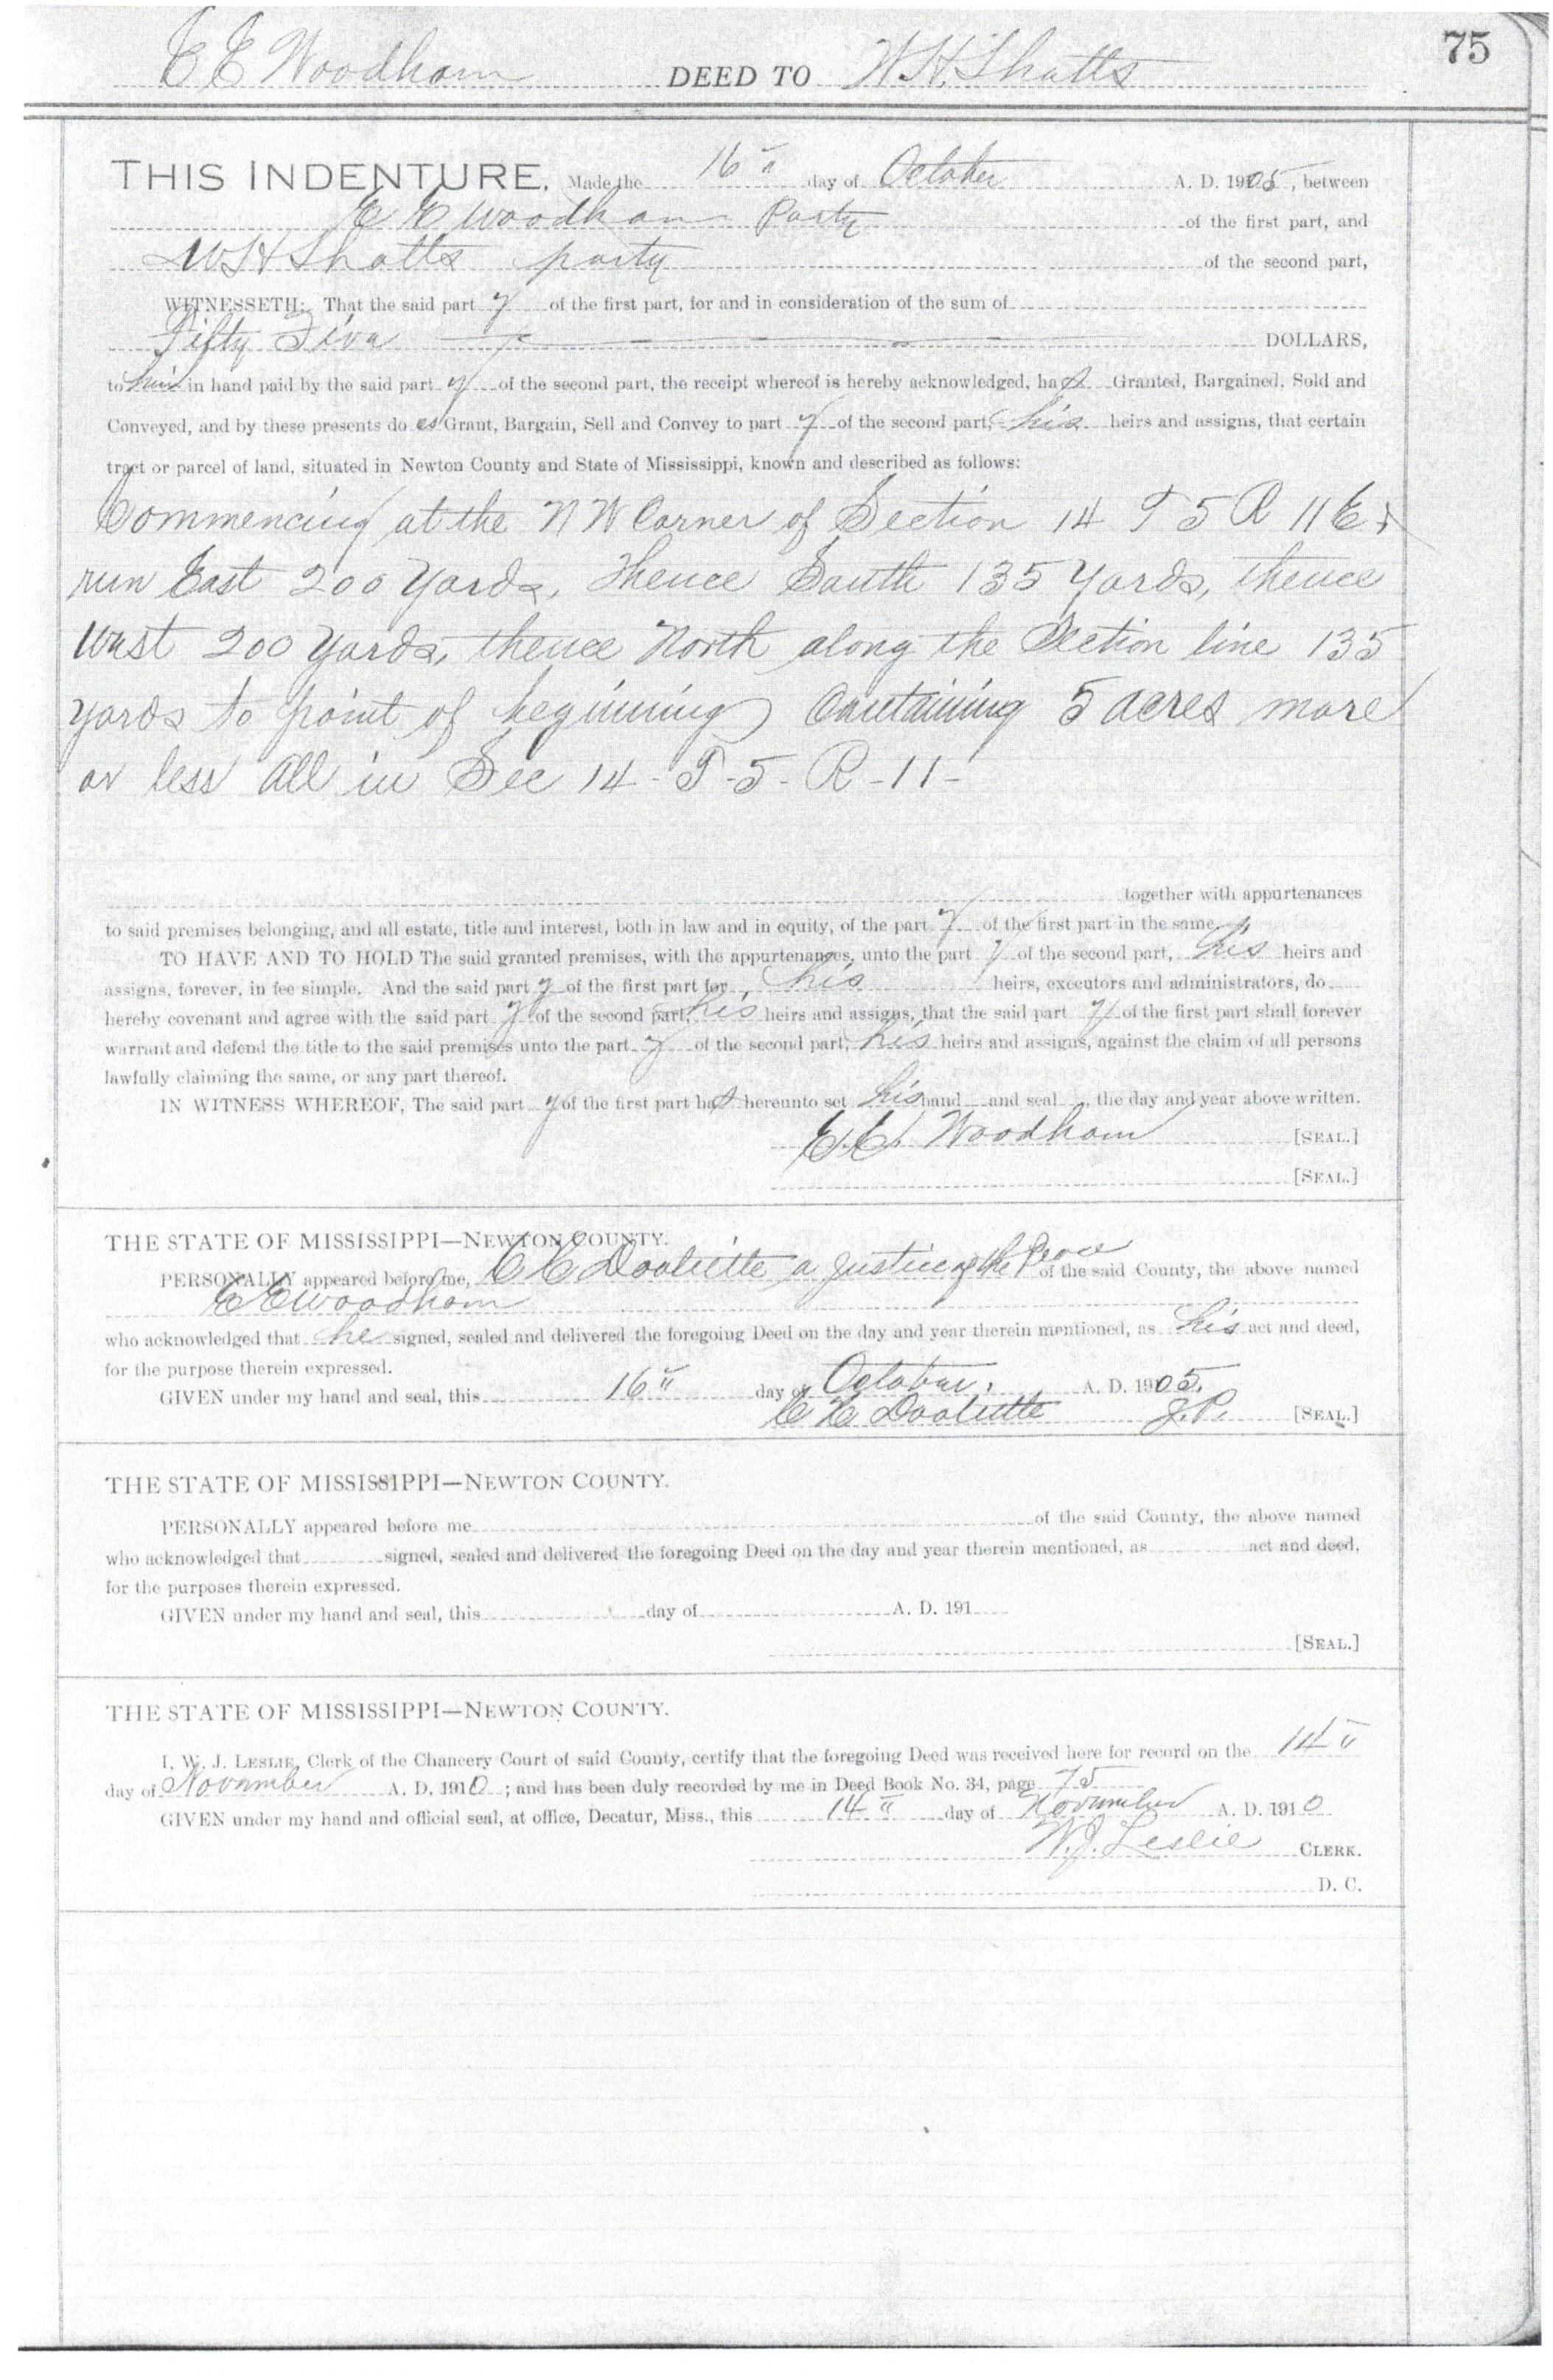 E E Woodham DEED TO W.H. Shatts 75
THIS INDENTURE, Made the 16" day of October A. D. 1905, between
E E Woodham Party of the first part, and
W H Shatts party of the second part,
WITNESSETH: That the said part y of the first part, for and in consideration of the sum of
Fifty Five DOLLARS,
to him in hand paid by the said part y of the second part, the receipt whereof is hereby acknowledged, has Granted, Bargained, Sold and
Conveyed, and by these presents do es Grant, Bargain, Sell and Convey to part y of the second part, his heirs and assigns, that certain
tract or parcel of land, situated in Newton County and State of Mississippi, known and described as follows:
Commencing at the N W Corner of Section 14 T 5 R 11 E,
run East 200 Yards, Thence South 135 Yards, thence
West 200 Yards, thence North along the Section line 135
yards to point of beginning Containing 5 acres more
or less all in Sec 14 - T - 5 - R - 11 -
together with appurtenances
to said premises belonging, and all estate, title and interest, both in law and in equity, of the part y of the first part in the same.
TO HAVE AND TO HOLD The said granted premises, with the appurtenances, unto the part y of the second part, his heirs and
assigns, forever, in fee simple. And the said part y of the first part for his heirs, executors and administrators, do
hereby covenant and agree with the said part y of the second part, his heirs and assigns, that the said part y of the first part shall forever
warrant and defend the title to the said premises unto the part y of the second part, his heirs and assigns, against the claim of all persons
lawfully claiming the same, or any part thereof.
IN WITNESS WHEREOF, The said part y of the first part has hereunto set his hand and seal, the day and year above written.
E.E. Woodham [SEAL.]
[SEAL.]
THE STATE OF MISSISSIPPI—NEWTON COUNTY.
PERSONALLY appeared before me, a Justice of the Peace of the said County, the above named
E E Woodham
who acknowledged that he signed, sealed and delivered the foregoing Deed on the day and year therein mentioned, as his act and deed,
for the purpose therein expressed.
GIVEN under my hand and seal, this 16" day of October, A. D. 1905.
J.P. [SEAL.]
THE STATE OF MISSISSIPPI—NEWTON COUNTY.
PERSONALLY appeared before me of the said County, the above named
who acknowledged that signed, sealed and delivered the foregoing Deed on the day and year therein mentioned, as act and deed,
for the purposes therein expressed.
GIVEN under my hand and seal, this day of A. D. 191
[SEAL.]
THE STATE OF MISSISSIPPI—NEWTON COUNTY.
I, W. J. LESLIE, Clerk of the Chancery Court of said County, certify that the foregoing Deed was received here for record on the 14"
day of November A. D. 1910; and has been duly recorded by me in Deed Book No. 34, page 75
GIVEN under my hand and official seal, at office, Decatur, Miss., this 14" day of November A. D. 1910
W.J. Leslie CLERK.
D. C.